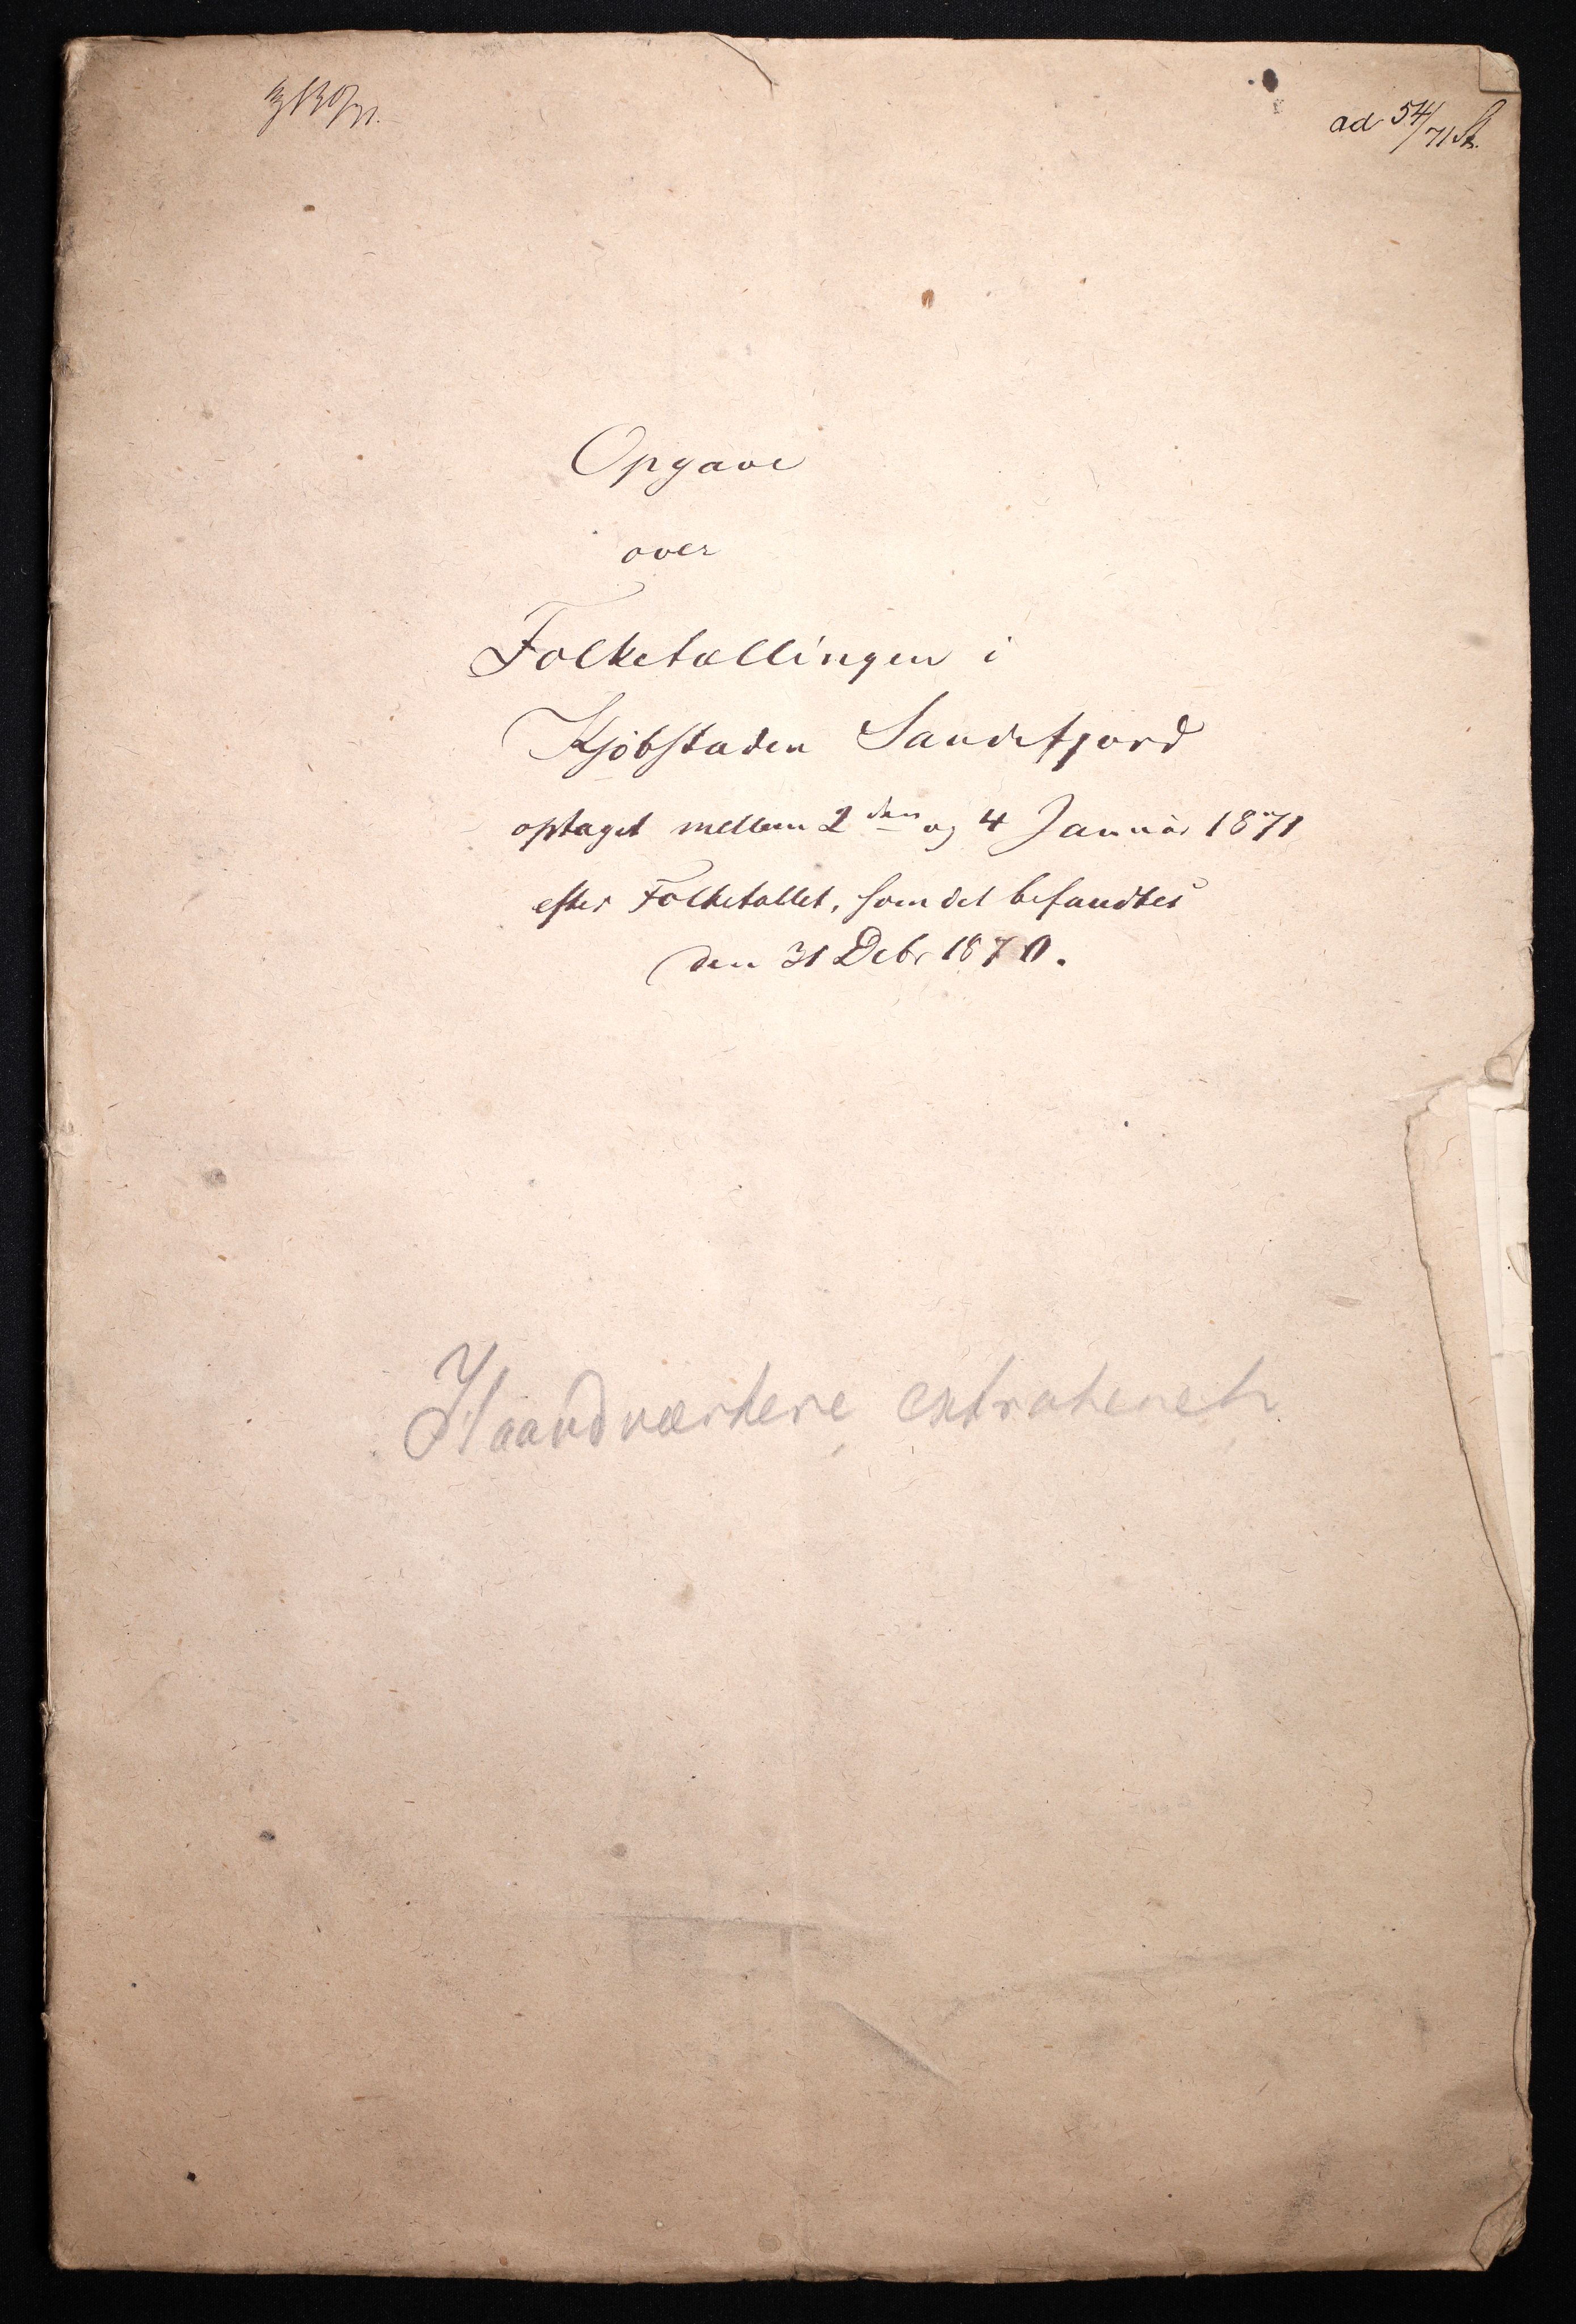 ad 54/71 St.
Opgave
over
Folketællingen i
Kjöbstaden Sandefjord
optaget mellem 2den og 4 Januar 1871
efter Folketallet, som det befandtes
den 31 Debr 1870.
Haandværkere extraheret